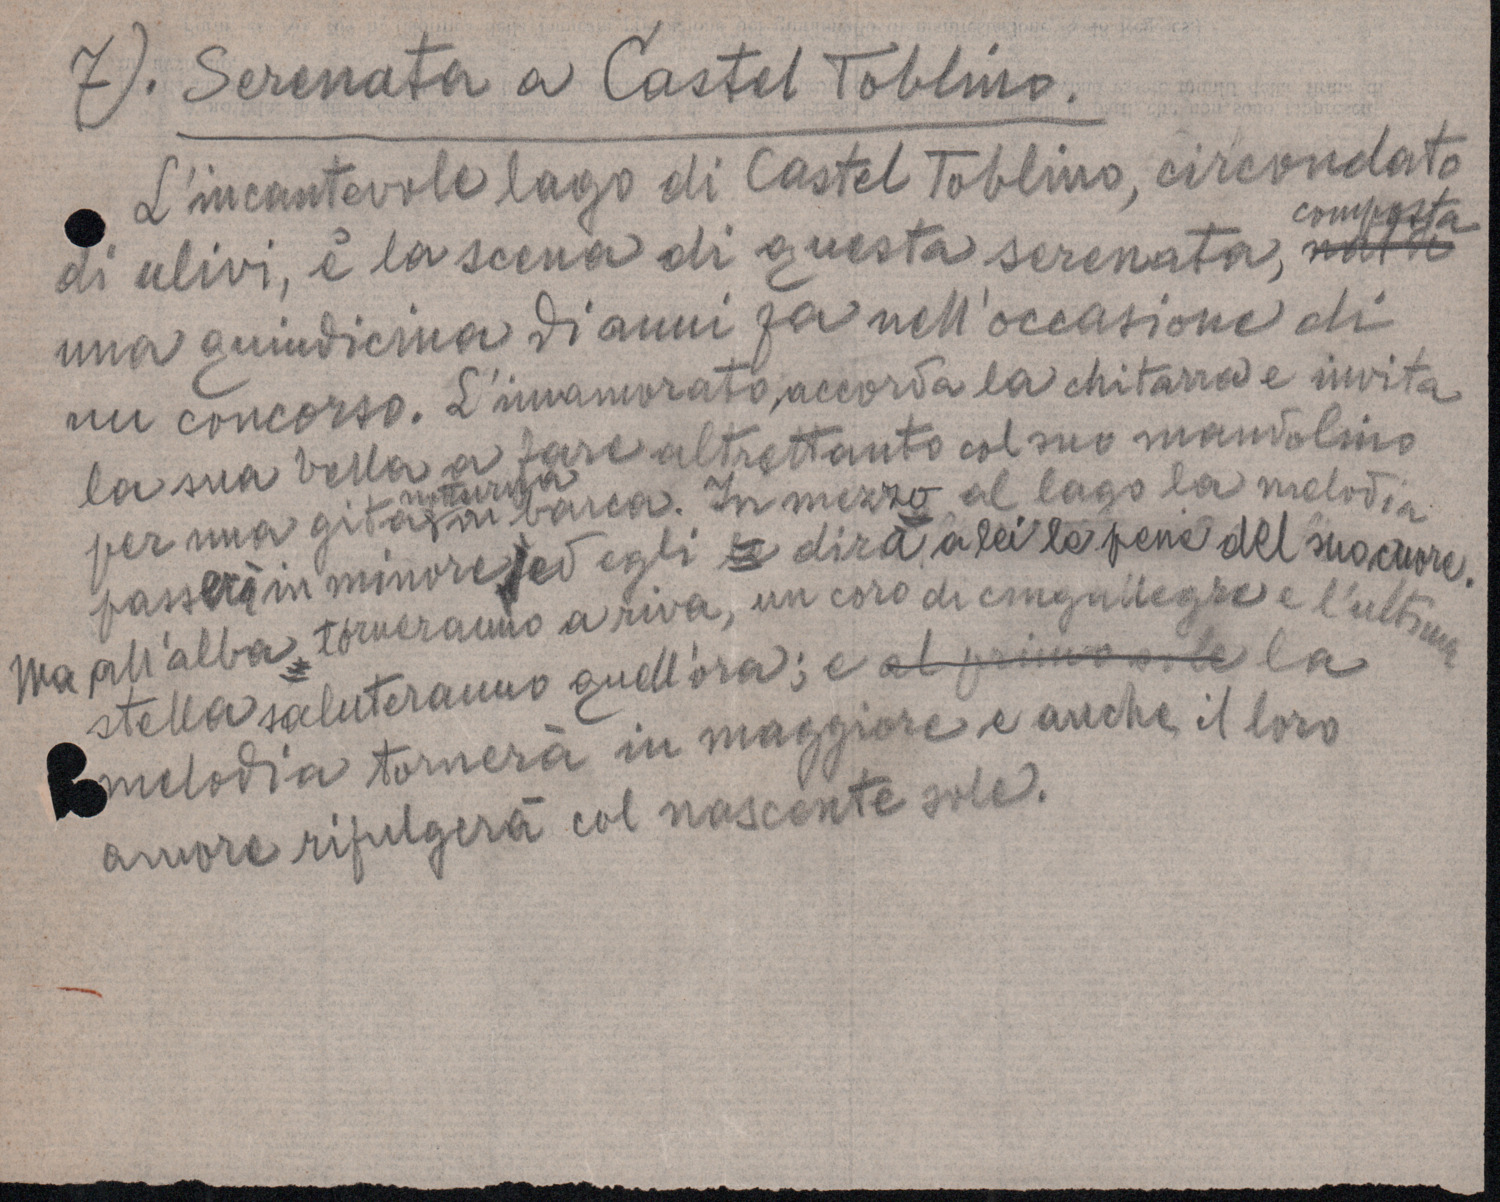 7). Serenata a Castel Toblino.
L'incantevole lago di Castel Toblino, circondato
composta
di ulivi, è la scena di questa serenata,
una quindicina di anni fa nell'occasione di
un concorso. L'innamorato, accorda la chitarra e invita
la sua bella a fare altrettanto col suo mandolino
notturna
per una gita in barca. In mezzo al lago la melodia
passerà in minore ed egli dirà a lei le pene del suo cuore.
Ma all'alba torneranno a riva, un coro di cingallegre e l'ultima
stella saluteranno quell'ora; e al primo sole la
melodia tornerà in maggiore e anche il loro
amore rifulgerà col nascente sole.